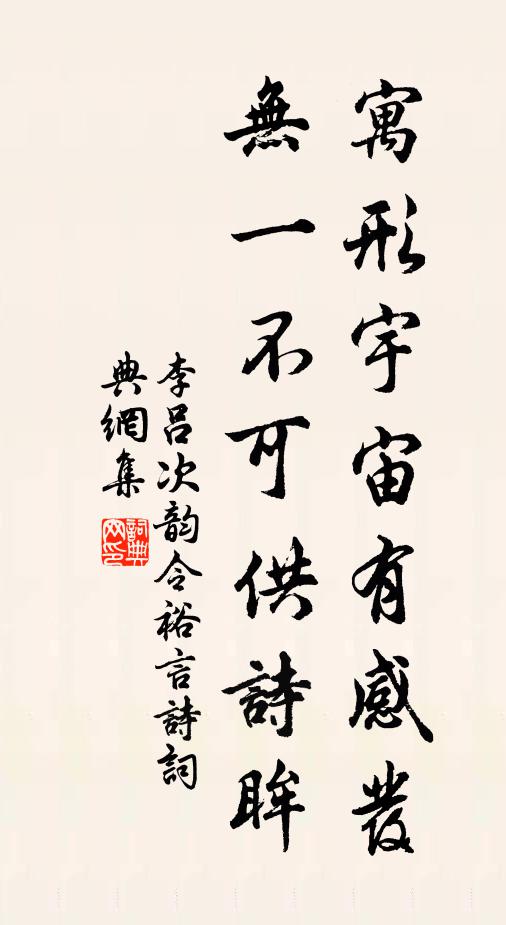 寓形宇宙有感發
無一不可供詩眸
李呂次韵令裕言詩詞
典網集
詞典網印